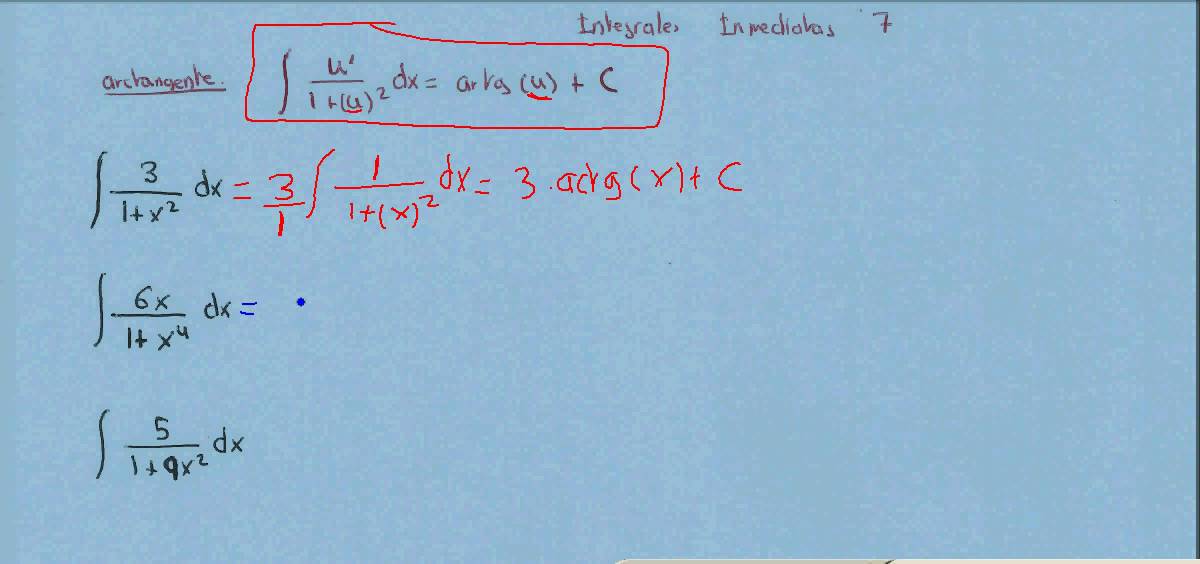 Integrales Inmediatas 7
arctangente. ∫ u'/(1+(u)²) dx = artg (u) + C
∫ 3/(1+x²) dx = 3/1 ∫ 1/(1+(x)²) dx = 3 · arctg(x) + C
∫ 6x/(1+x⁴) dx =
∫ 5/(1+9x²) dx